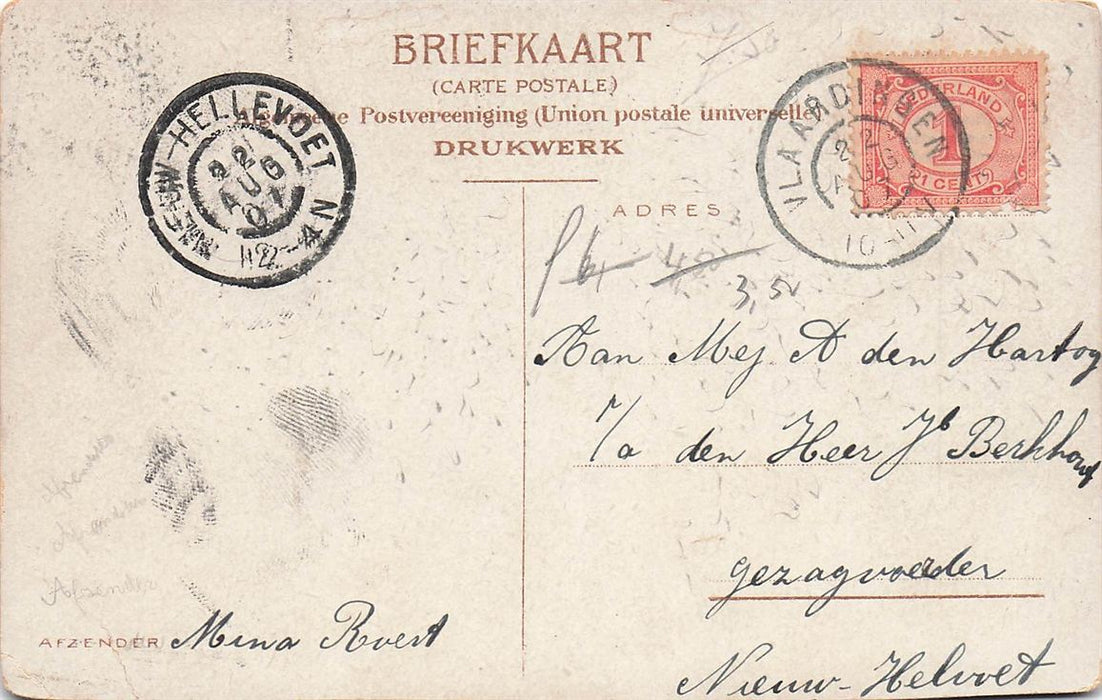 BRIEFKAART
(CARTE POSTALE)
Algemeene Postvereeniging (Union postale universelle)
DRUKWERK
NIEUW-HELLEVOET
22 AUG 07
12-4N
VLAARDINGEN
10-11
NEDERLAND
1
1 CENT
ADRES
3,5
Aan Mej A den Hartog
p/a den Heer Jb Berkhout
gezagvoerder
Nieuw-Helvoet
Afzender
AFZENDER Mina Roest